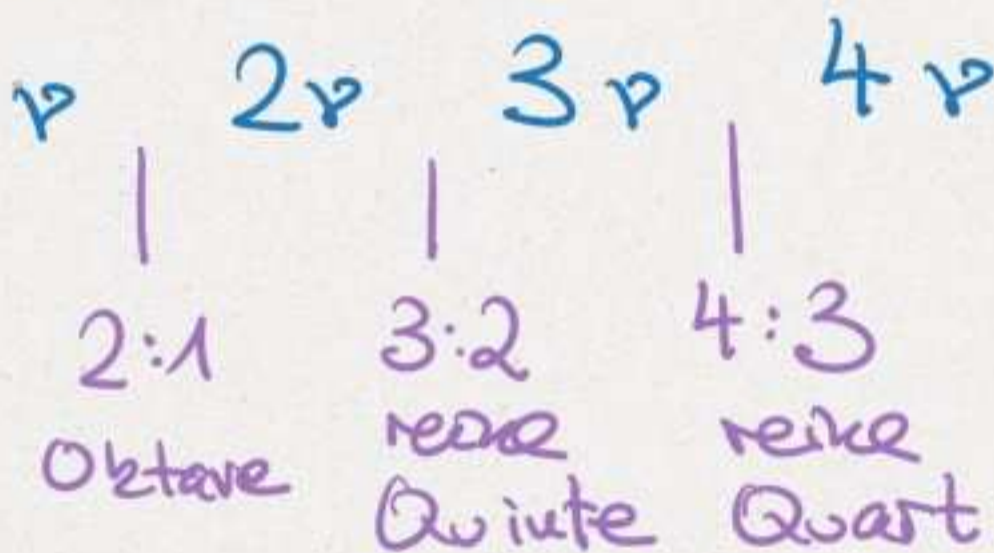 ν 2ν 3ν 4ν
2:1 3:2 4:3
Oktave reine reine
Quinte Quart